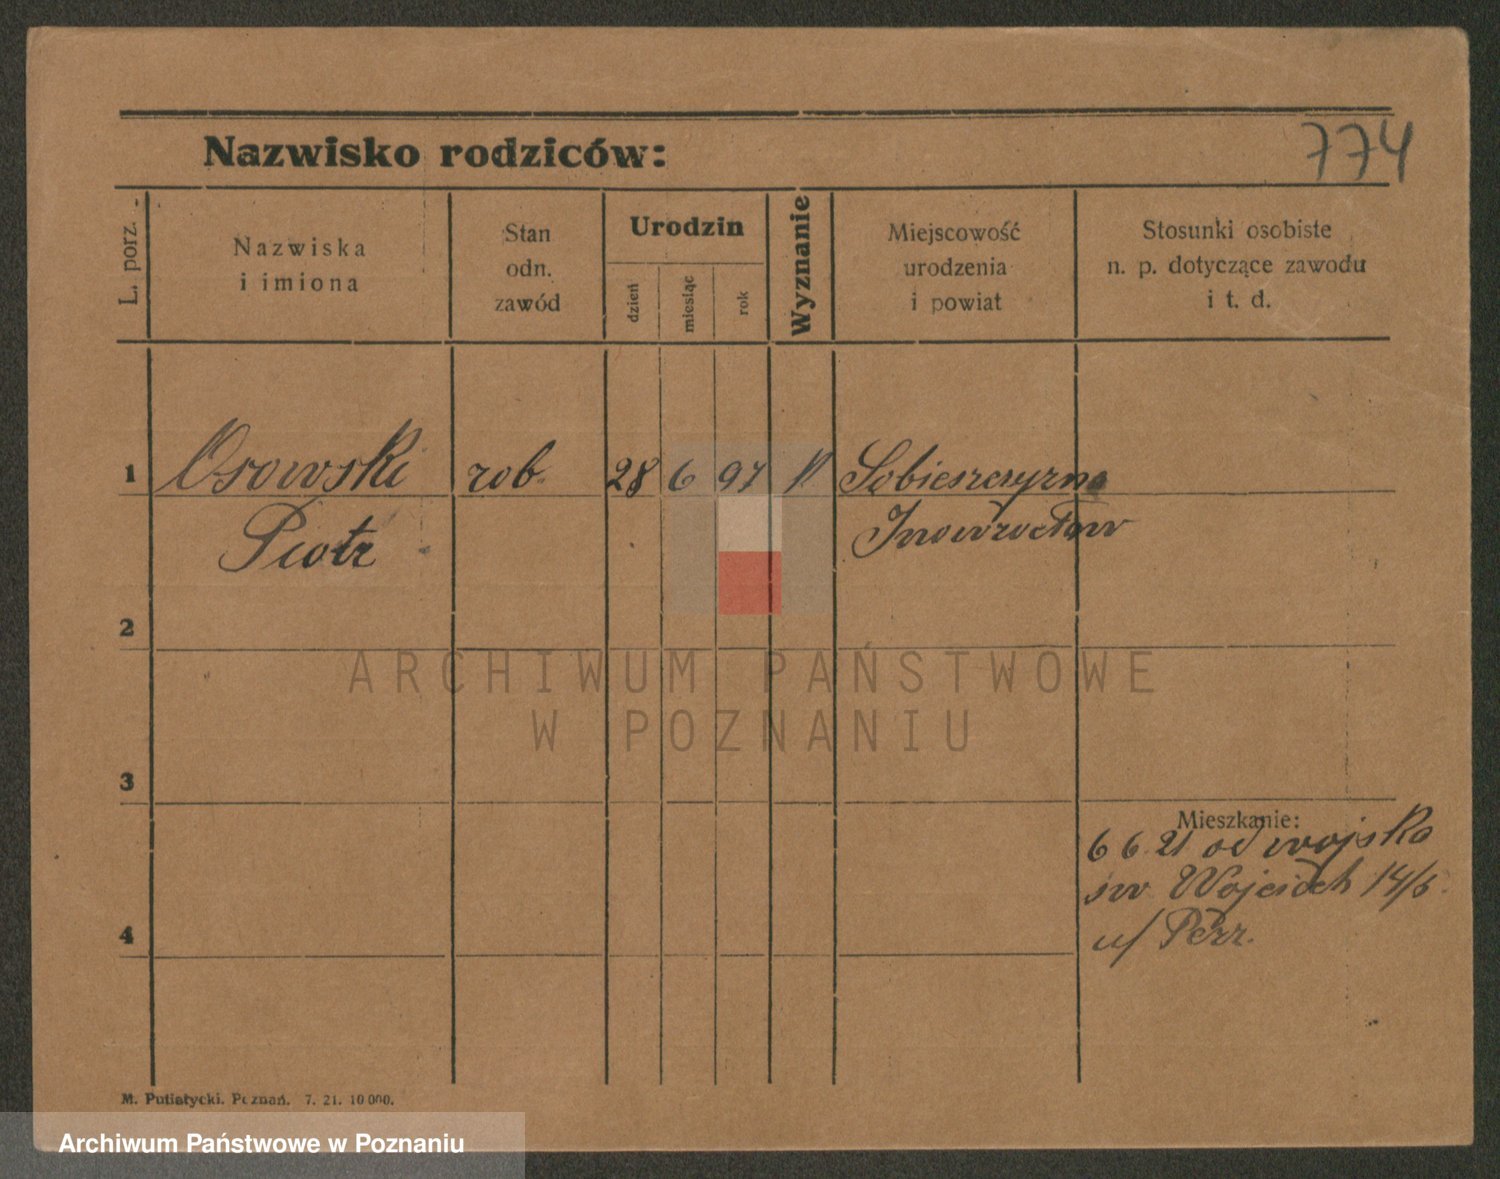 774
Nazwisko rodziców:
L. porz.
Nazwiska
i imiona
Stan
odn.
zawód
Urodzin
dzień
miesiąc
rok
Wyznanie
Miejscowość
urodzenia
i powiat
Stosunki osobiste
n. p. dotyczące zawodu
i t. d.
1
Osowski rob. 28 6 97
Piotr
Inowrocław
2
3
4
Mieszkanie:
6 6 21 od wojska
św Wojciech 14/6
u/
ARCHIWUM PAŃSTWOWE
W POZNANIU
M. Putiatycki. Poznań. 7. 21. 10 000.
Archiwum Państwowe w Poznaniu